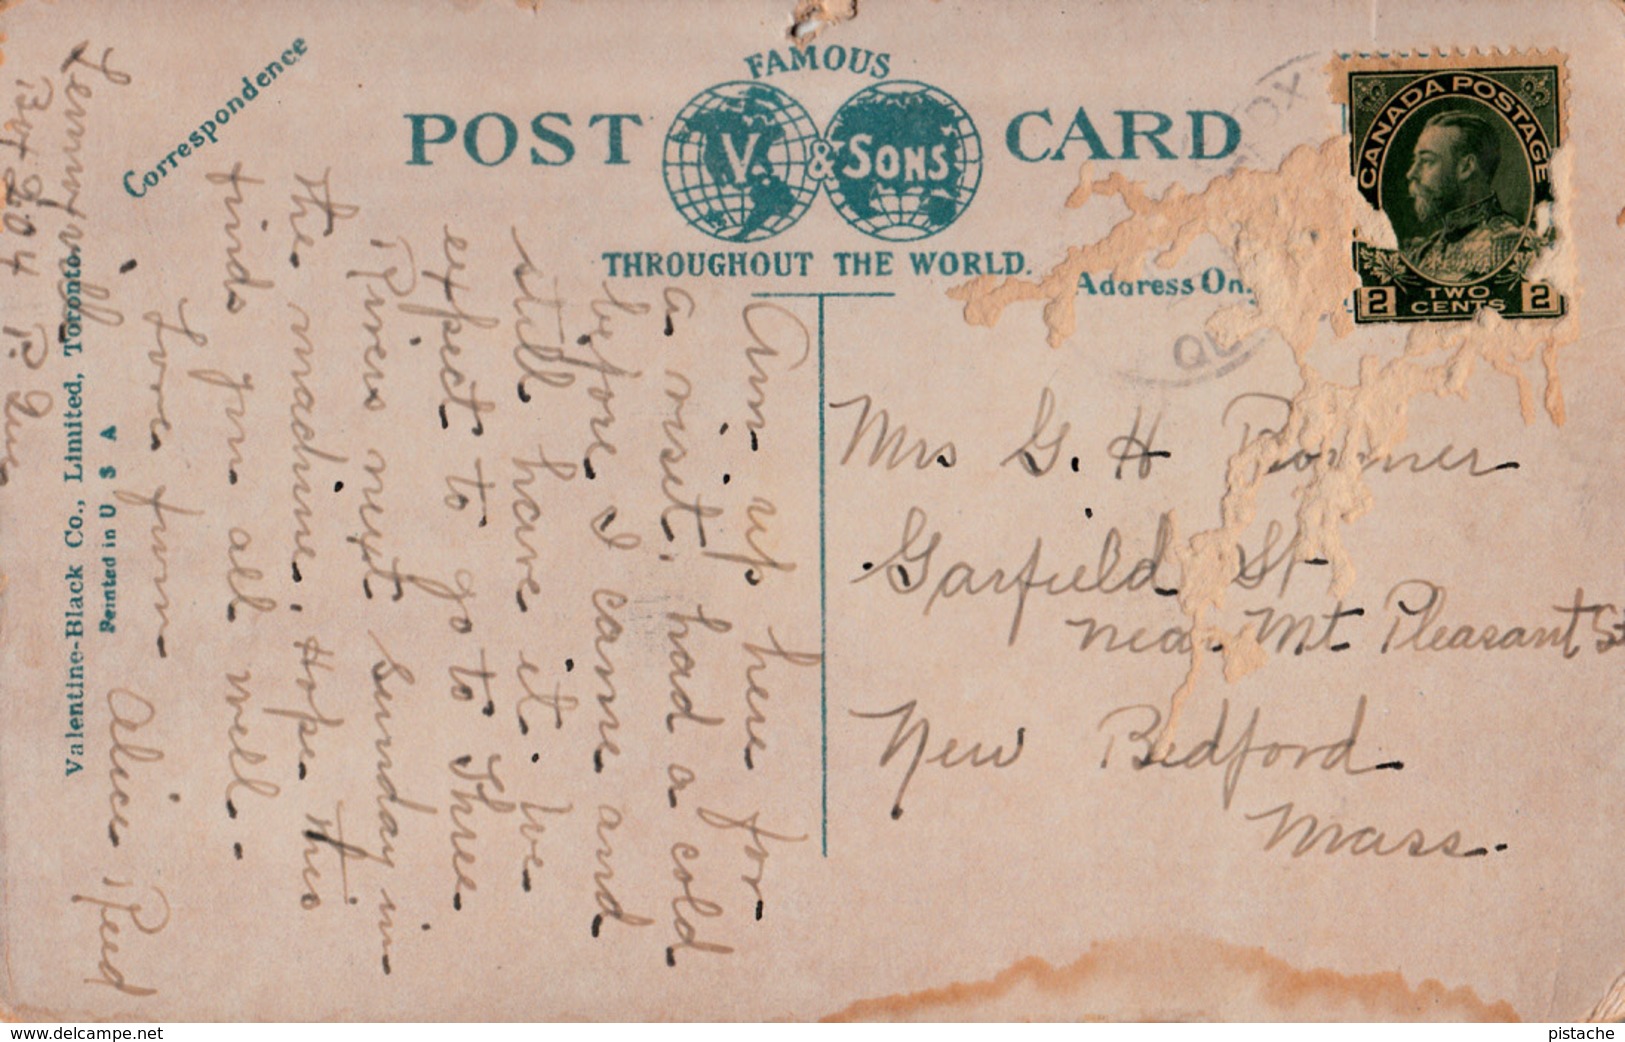 Correspondence
FAMOUS
POST CARD
V. & SONS
THROUGHOUT THE WORLD.
Address On
CANADA POSTAGE
2 TWO CENTS 2
Mrs G. H
Garfield St
near Mt Pleasant St
New Bedford
Mass.
Am up here for
a visit, had a cold
before I came and
still have it. We
expect to go to Three
Rivers next Sunday in
the machine. Hope this
finds you all well.
Love from
Alice Reed
Valentine-Black Co., Limited, Toronto.
Printed in U S A
Lennoxville
Box 204 P. Que
www.delcampe.net
pistache